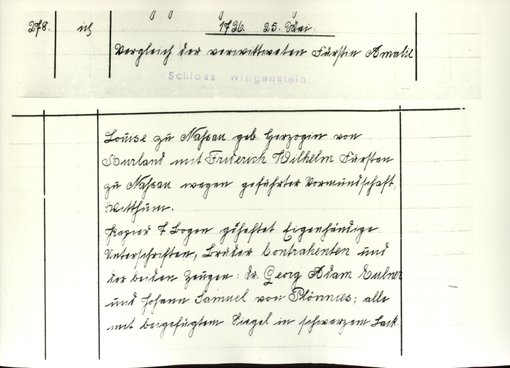 278. ich 1726. 25. Mai.
Vergleich der verwittweten Fürstin Amalie
Schloss Wittgenstein
Louise zu Nassau geb. Herzogin von
Kurland mit Friderich Wilhelm Fürsten
zu Nassau wegen geführter Vormundschaft,
Witthum.
Papier 7 Bogen geheftet Eigenhändige
Unterschriften, beider Contrahenten und
der beiden Zeugen: Dr. Georg Adam
und Johann Samuel von Plönnies; alle
mit beigefügtem Siegel in schwarzem Lack.